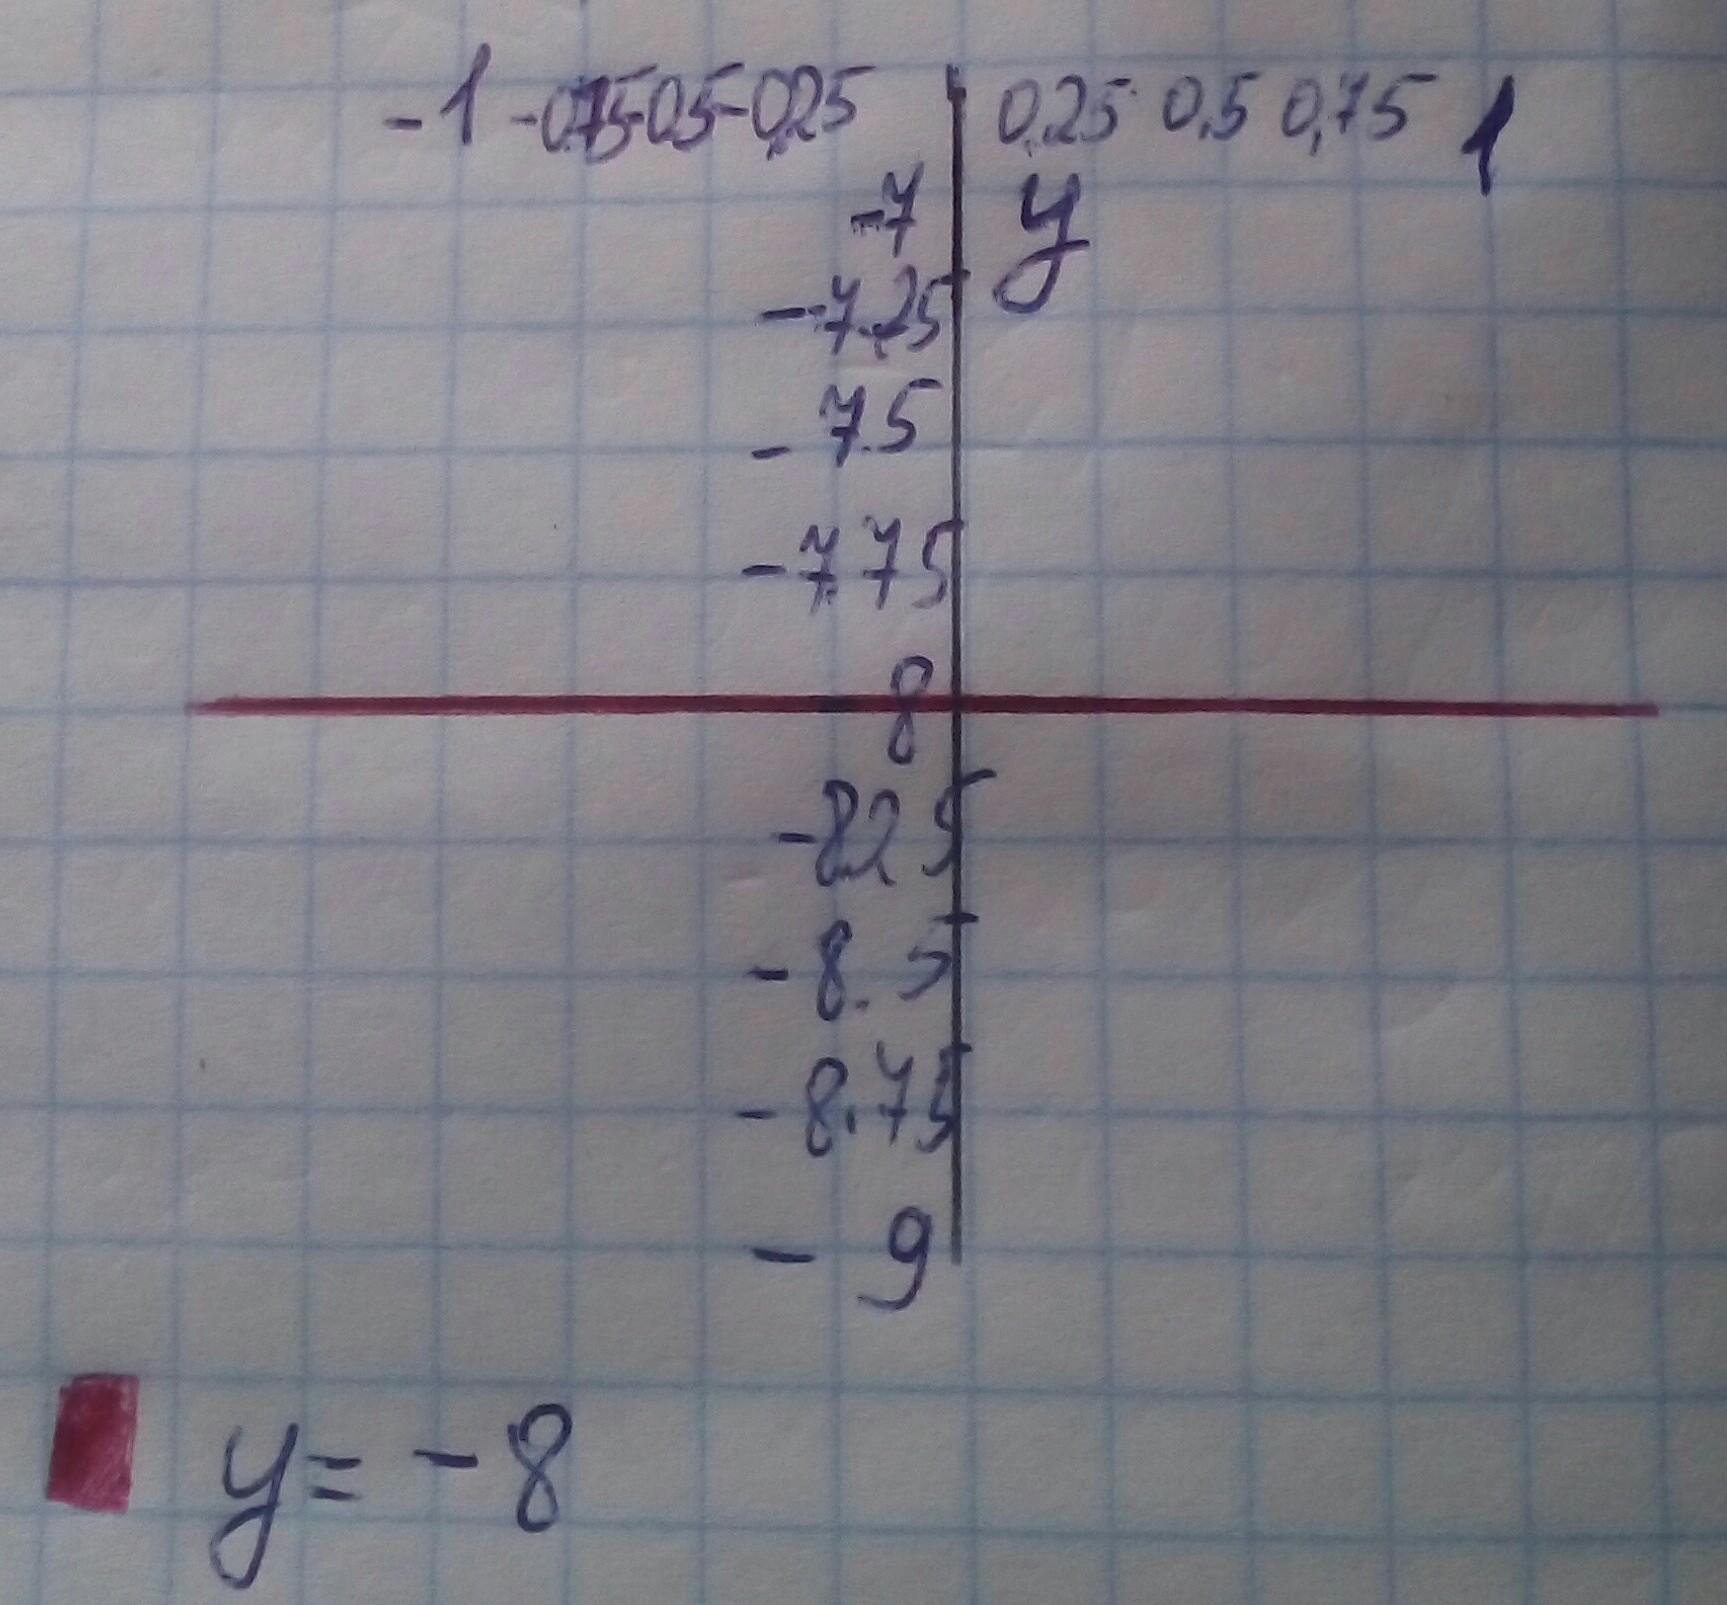 -1 -0.75 -0.5 -0,25 0.25 0.5 0,75 1
-7 y
-7.25
-7.5
-7.75
8
-8.25
-8.5
-8.75
-9
y = -8